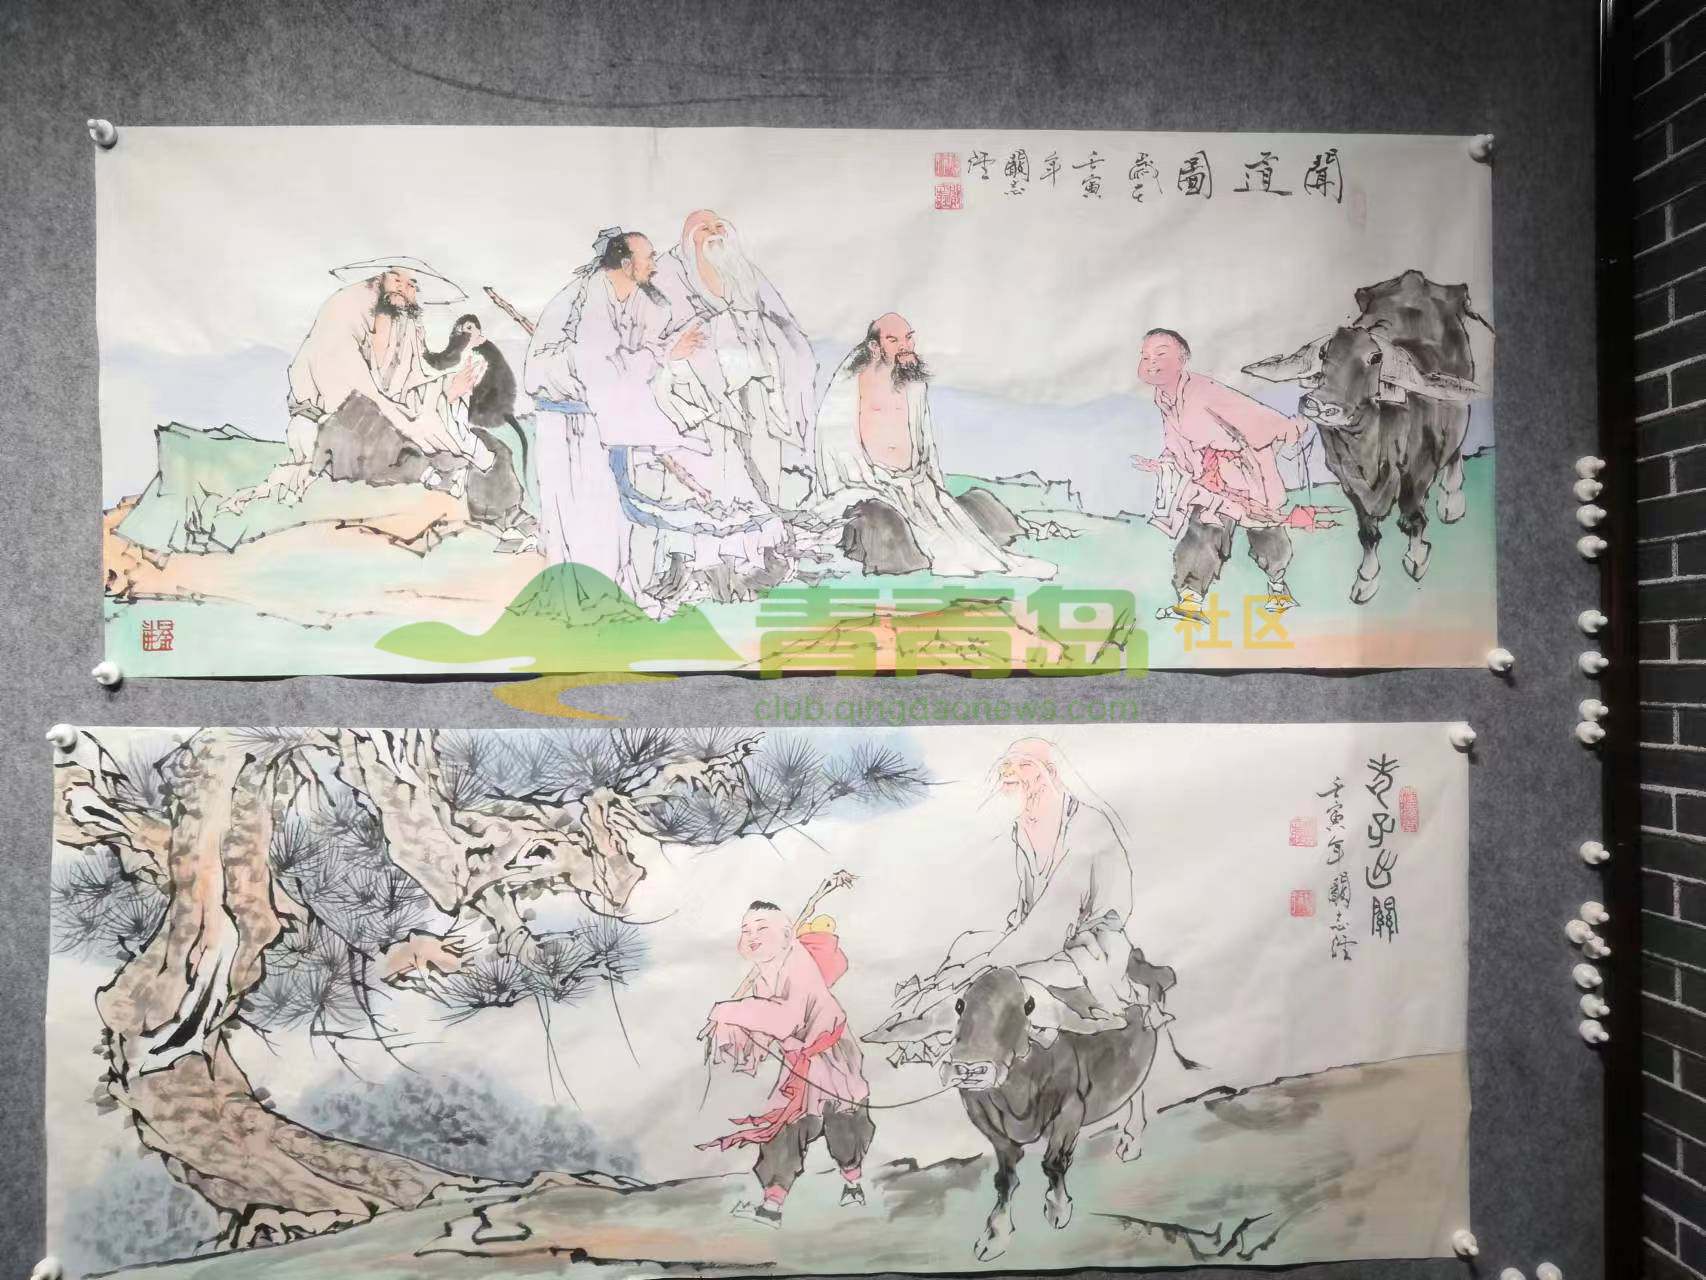 聞道圖
歲在
壬寅
年
關志
滢
青青岛社区
club.qingdaonews.com
老子出關
壬寅年關志滢